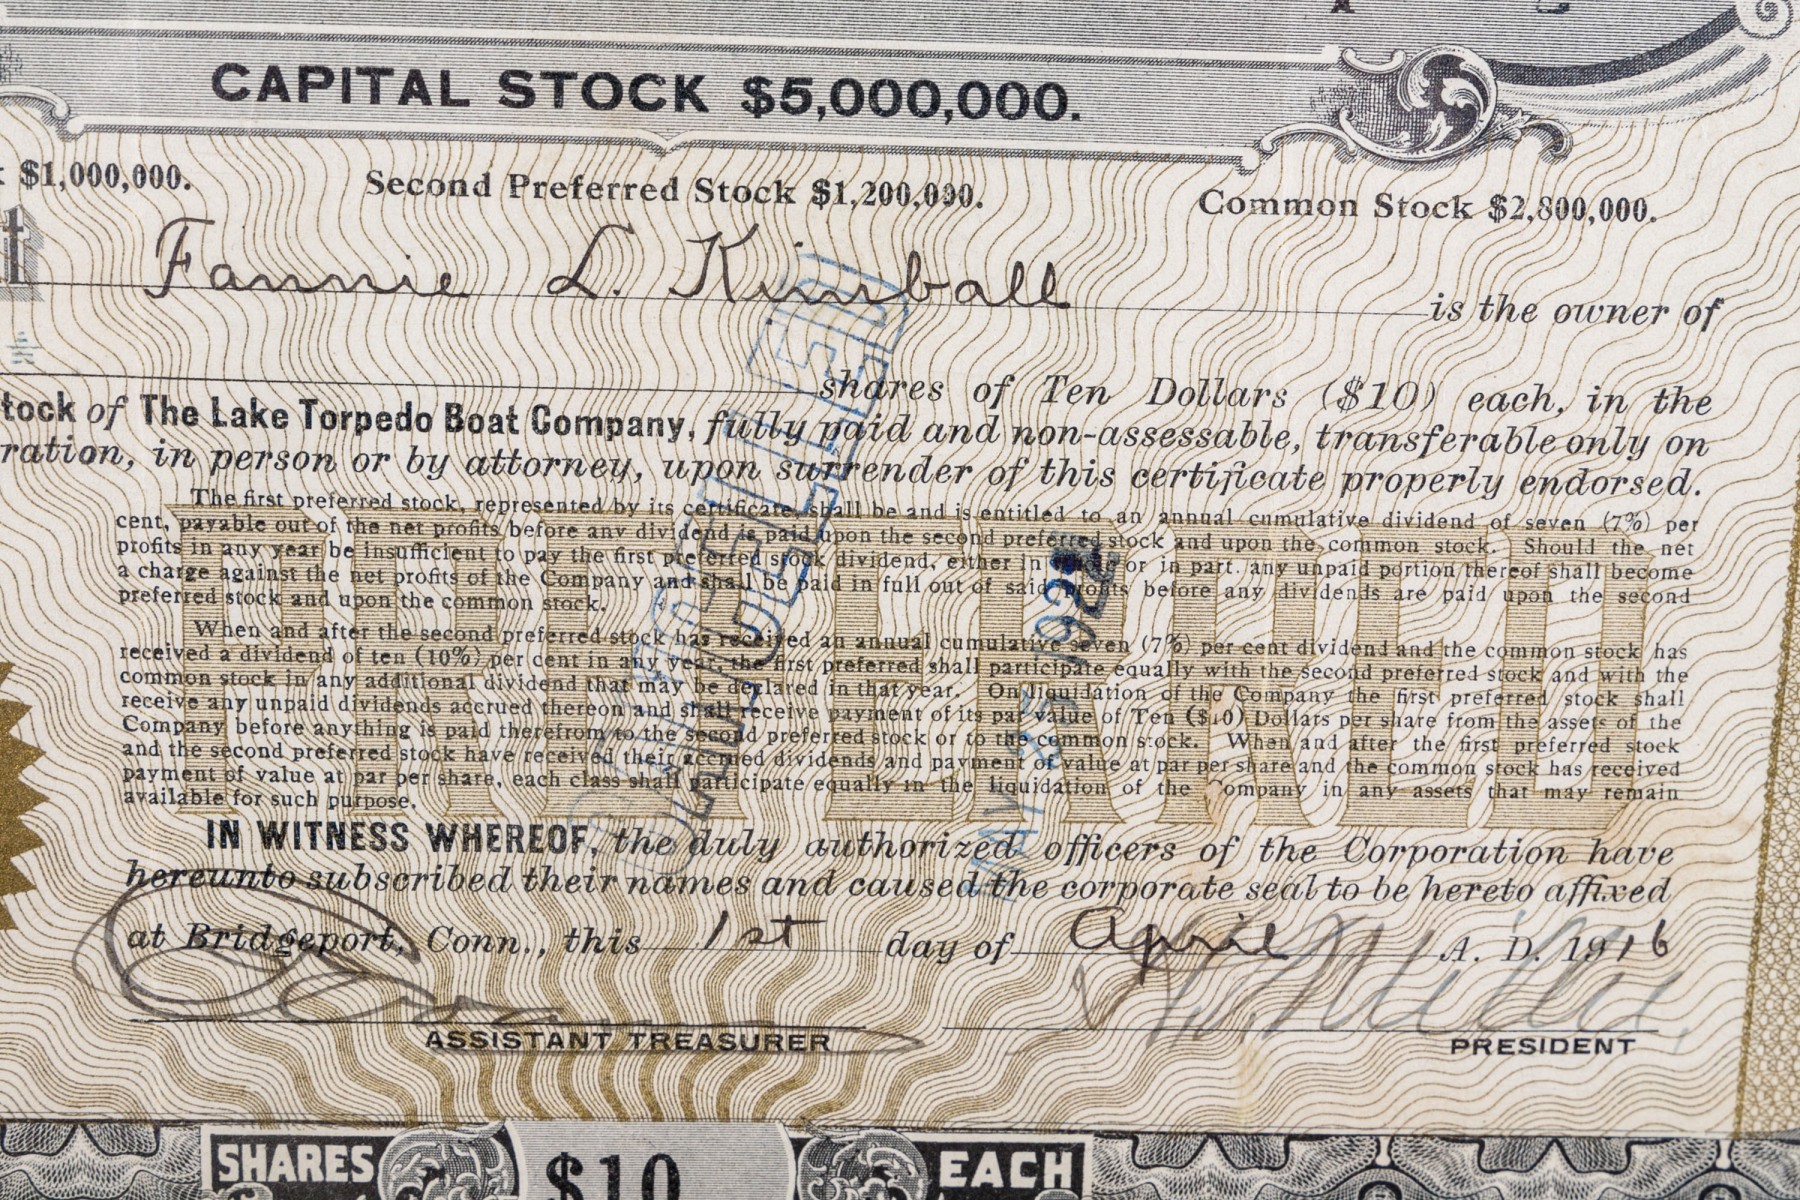 CAPITAL STOCK $5,000,000.
$1,000,000. Second Preferred Stock $1,200,000. Common Stock $2,800,000.
Fannie L. Kimball is the owner of
shares of Ten Dollars ($10) each, in the
tock of The Lake Torpedo Boat Company, fully paid and non-assessable, transferable only on
ration, in person or by attorney, upon surrender of this certificate properly endorsed.
The first preferred stock, represented by its certificate, shall be and is entitled to an annual cumulative dividend of seven (7%) per
cent, payable out of the net profits before any dividend is paid upon the second preferred stock and upon the common stock. Should the net
profits in any year be insufficient to pay the first preferred stock dividend, either in whole or in part, any unpaid portion thereof shall become
a charge against the net profits of the Company and shall be paid in full out of said profits before any dividends are paid upon the second
preferred stock and upon the common stock.
When and after the second preferred stock has received an annual cumulative seven (7%) per cent dividend and the common stock has
received a dividend of ten (10%) per cent in any year, the first preferred shall participate equally with the second preferred stock and with the
common stock in any additional dividend that may be declared in that year. On liquidation of the Company the first preferred stock shall
receive any unpaid dividends accrued thereon and shall receive payment of its par value of Ten ($10) Dollars per share from the assets of the
Company before anything is paid therefrom to the second preferred stock or to the common stock. When and after the first preferred stock
and the second preferred stock have received their accrued dividends and payment of value at par per share and the common stock has received
payment of value at par per share, each class shall participate equally in the liquidation of the Company in any assets that may remain
available for such purpose.
PREFERRED
CANCELLED
MAY 25 192
IN WITNESS WHEREOF, the duly authorized officers of the Corporation have
hereunto subscribed their names and caused the corporate seal to be hereto affixed
at Bridgeport, Conn., this 1st day of April A. D. 1916
ASSISTANT TREASURER PRESIDENT
SHARES $10 EACH